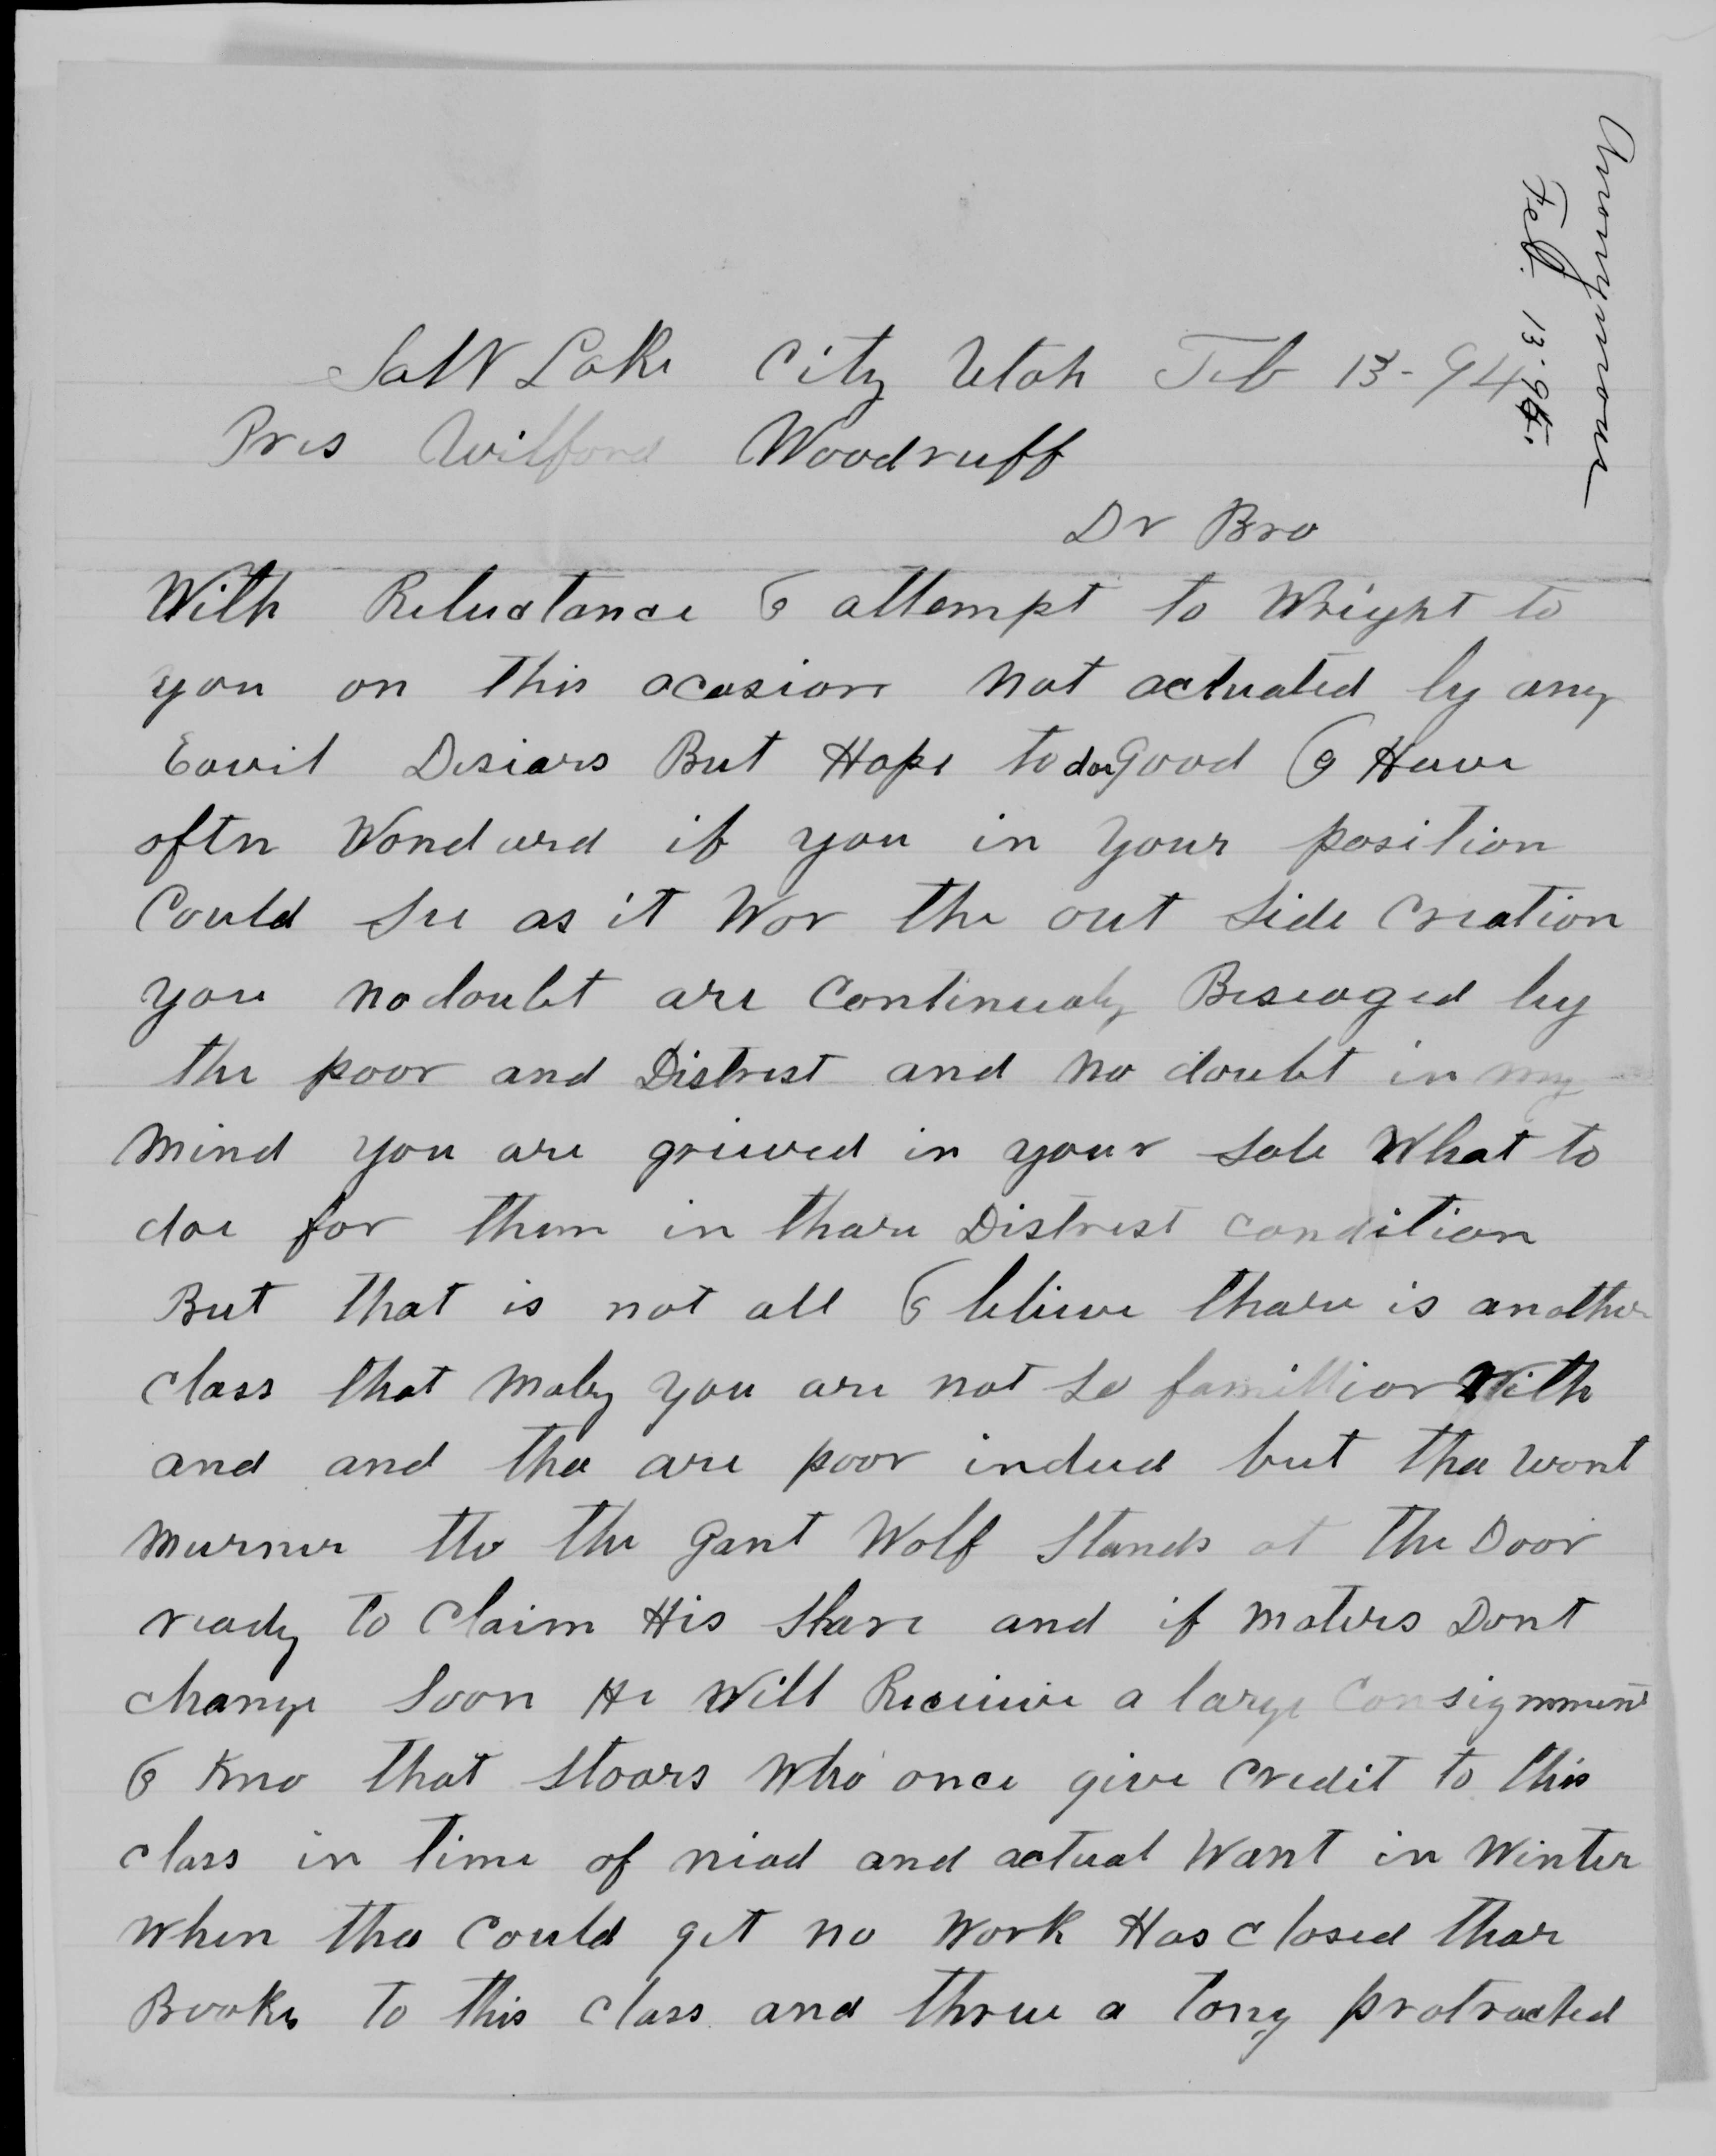 Anonymous
Feb. 13-94.
Salt Lake City Utah Feb 13-94
Pres Wilford Woodruff
Dr Bro
With Reluctance I attempt to Wright to
you on this acasion not actuated by any
Eavil Desiars But Hope to doe good I Have
oftn Wondard if you in your position
Could See as it Wor the out Side Creation
you no doubt are Continualy Beseaged by
the poor and Distrest and no doubt in my
Mind you are grieved in your Sole What to
doe for them in thare Distrest condition
But that is not all I believe thare is another
Class that Maby you are not So famillior With
and and tha are poor indeed but tha wont
Murmer tho the gant Wolf Stands at the Door
ready to Claim His Share and if Maters Dont
change Soon He Will Receiuve a large Consignment
I Kno that Stoars Who once give Credit to this
class in time of nead and actual Want in Winter
When tha Could get no Work Has closed thar
Books to this class and threw a long protracted